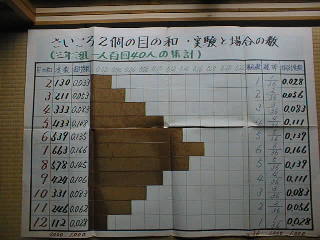 さいころ2個の目の和・実験と場合の数
(三年二組一人百回40人の集計)
目の和 度数
2 130 0.033 1 1/36 0.028
3 211 0.053 2 2/36 0.056
4 333 0.083 3 3/36 0.083
5 433 0.108 4 4/36 0.111
6 539 0.135 5 5/36 0.139
7 663 0.166 6 6/36 0.166
8 578 0.145 5 5/36 0.139
9 424 0.106 4 4/36 0.111
10 331 0.083 3 3/36 0.083
11 246 0.062 2 2/36 0.056
12 112 0.028 1 1/36 0.028
4000 1.000 36 1.000